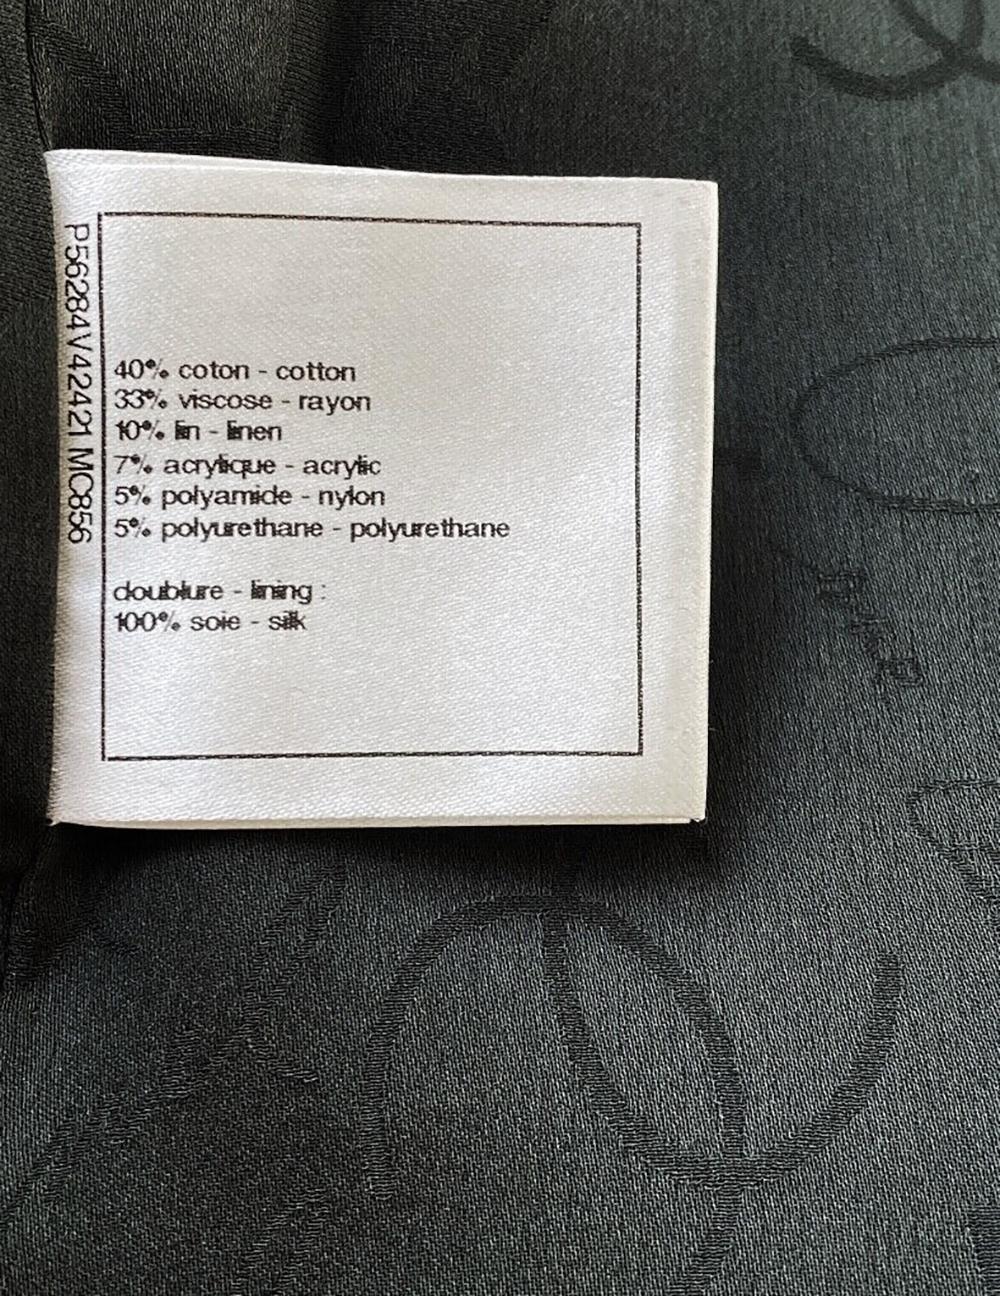 P56284V42421 MC856
40% coton - cotton
33% viscose - rayon
10% lin - linen
7% acrylique - acrylic
5% polyamide - nylon
5% polyurethane - polyurethane
doublure - lining :
100% soie - silk